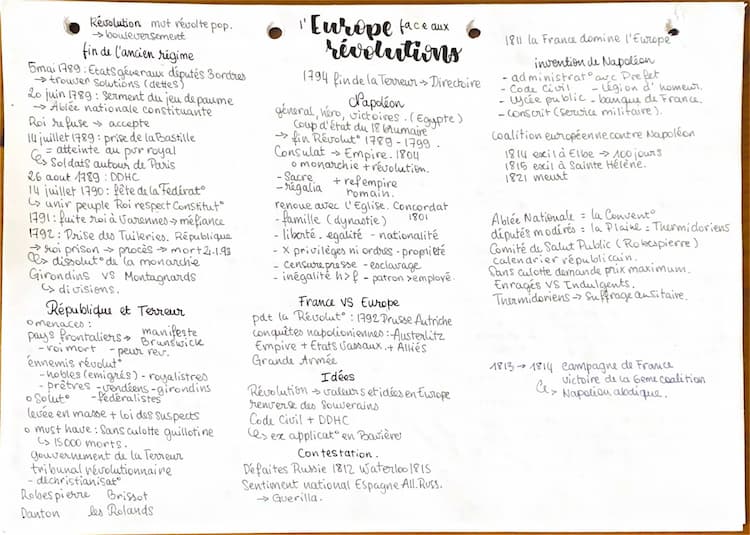 Révolution mvt révolte pop.
↳ bouleversement
fin de l'ancien régime
5 mai 1789 : Etats généraux députés 3 ordres
→ trouver solutions (dettes)
20 juin 1789 : serment du jeu de paume
→ Ablée nationale constituante
Roi refuse → accepte
14 juillet 1789 : prise de la Bastille
= atteinte au pvr royal
↳ soldats autour de Paris
26 aout 1789 : DDHC
14 juillet 1790 : fête de la Fédérat°
↳ unir peuple Roi respect Constitut°
1791 : fuite roi à Varennes → méfiance
1792 : Prise des Tuileries. République
→ roi prison → procès → mort 21.1.93
↳ dissolut° de la monarchie
Girondins VS Montagnards
↳ divisions.
République et Terreur
o menaces :
pays frontaliers → manifeste Brunswick
- roi mort - peur rev.
énnemis révolut°
- nobles (emigrés) - royalistres
- prêtres - vendéens - girondins
- fédéralistes
o Solut°
levée en masse + loi des suspects
o must have : Sans culotte guillotine
↳ 15000 morts.
gouvernement de la Terreur
tribunal révolutionnaire
- dechristianisat°
Robespierre Brissot
Danton les Rolands
l'Europe face aux
révolutions
1794 fin de la Terreur → Directoire
Napoléon
général, héro, victoires. (Egypte)
coup d'état du 18 brumaire
→ fin Révolut° 1789 - 1799.
Consulat → Empire. 1804
o monarchie + révolution.
- Sacre
- régalia
+ ref empire
romain.
renoue avec l'Eglise. Concordat
1801
- famille (dynastie)
- liberté - egalité - nationalité
- x privilèges ni ordres - propriété
- censure presse - esclavage
- inégalité h>f - patron > employé.
France VS Europe
pdt la Révolut° : 1792 Prusse Autriche
conquêtes napoléoniennes : Austerlitz
Empire + Etats Vassaux + Alliés
Grande Armée
Idées
Révolution → valeurs et idées en Europe
renverse des souverains
Code Civil + DDHC
↳ ex applicat° en Bavière
Contestation.
Défaites Russie 1812 Waterloo 1815
Sentiment national Espagne All. Russ.
→ Guerilla.
1811 la France domine l'Europe
invention de Napoléon
- administrat° avc Préfet
- Code Civil - légion d'honneur.
- lycée public - banque de France.
- conscrit (service militaire).
coalition européenne contre Napoléon
1814 exil à Elbe → 100 jours
1815 exil à Sainte Hélène.
1821 meurt
Ablée Nationale = la Convent°
députés modérés = la Plaine : Thermidoriens
Comité de Salut Public (Robespierre)
calendrier républicain.
Sans culotte demande prix maximum.
Enragés VS Indulgents.
Thermidoriens → suffrage censitaire.
1813 → 1814 campagne de France
victoire de la 6eme coalition
↳ Napoléon abdique.